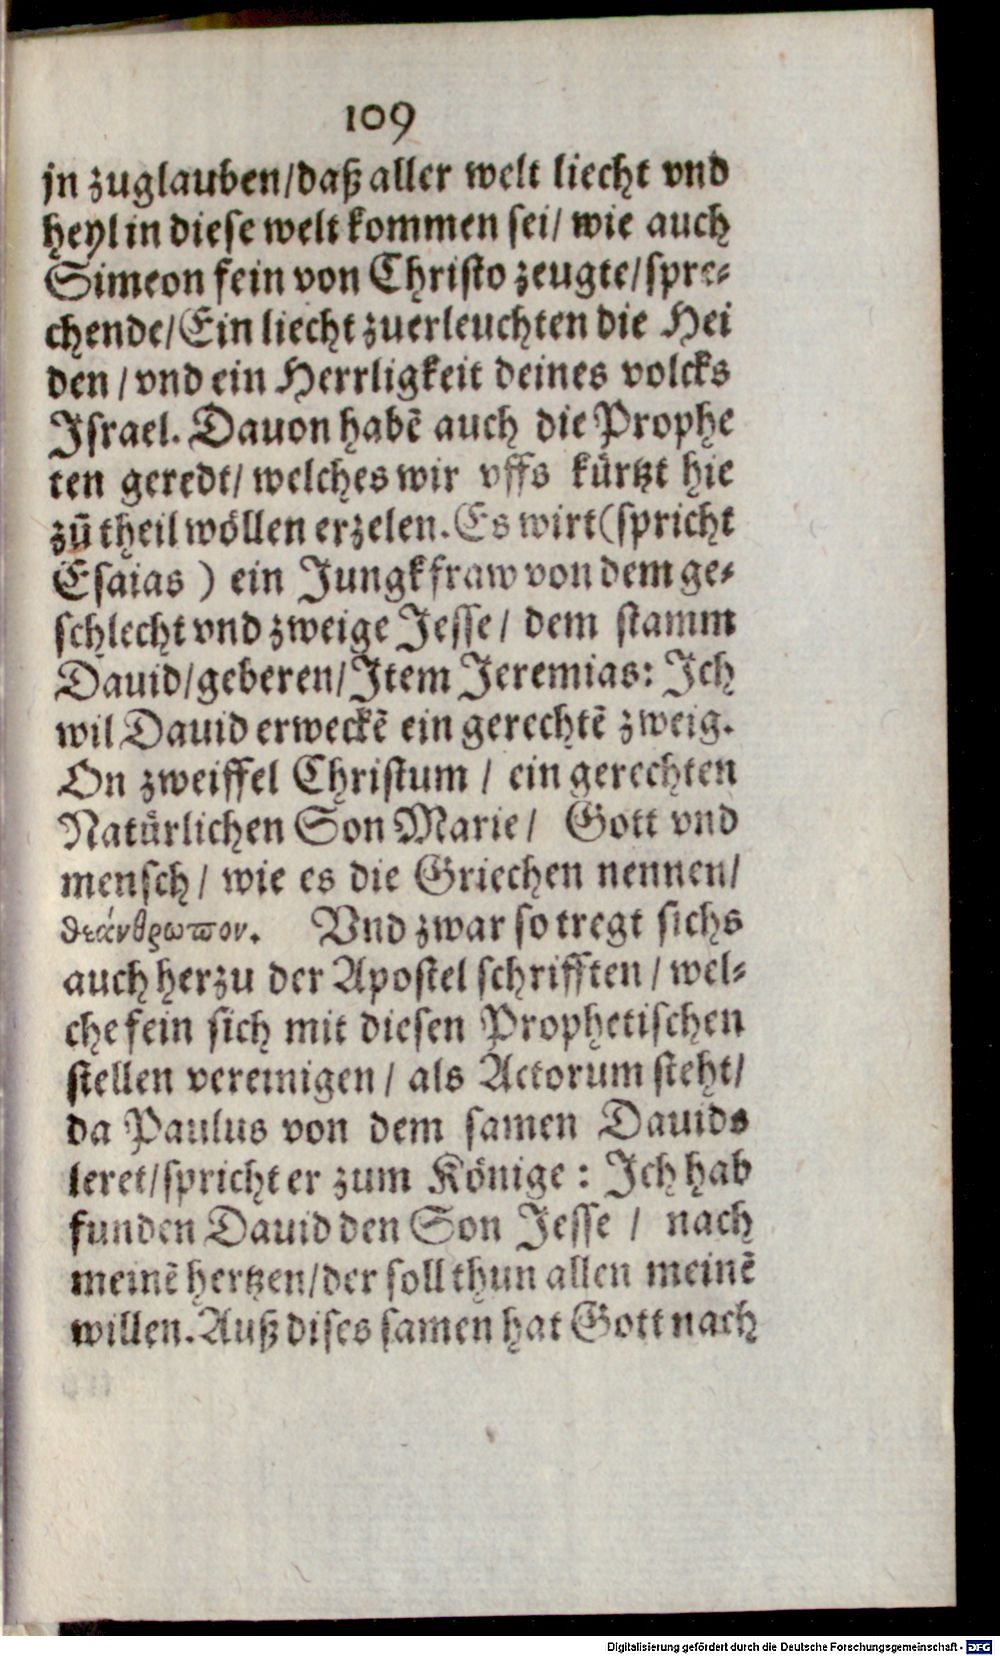 109
jn zuglauben/daß aller welt liecht vnd
heyl in diese welt kommen sei/ wie auch
Simeon fein von Christo zeugte/spre-
chende/Ein liecht zuerleuchten die Hei
den / vnd ein Herrligkeit deines volcks
Israel. Dauon habē auch die Prophe
ten geredt/ welches wir vffs kürtzt hie
zū theil wöllen erzelen. Es wirt (spricht
Esaias ) ein Jungkfraw von dem ge-
schlecht vnd zweige Jesse / dem stamm
Dauid/geberen/Item Jeremias: Ich
wil Dauid erweckē ein gerechtē zweig.
On zweiffel Christum / ein gerechten
Natürlichen Son Marie/ Gott vnd
mensch / wie es die Griechen nennen/
θεάνθρωπον. Vnd zwar so tregt sichs
auch herzu der Apostel schrifften / wel-
che fein sich mit diesen Prophetischen
stellen vereinigen / als Actorum steht/
da Paulus von dem samen Dauids
leret/spricht er zum Könige : Ich hab
funden Dauid den Son Jesse / nach
meinē hertzen/der soll thun allen meinē
willen. Auß dises samen hat Gott nach
Digitalisierung gefördert durch die Deutsche Forschungsgemeinschaft - DFG